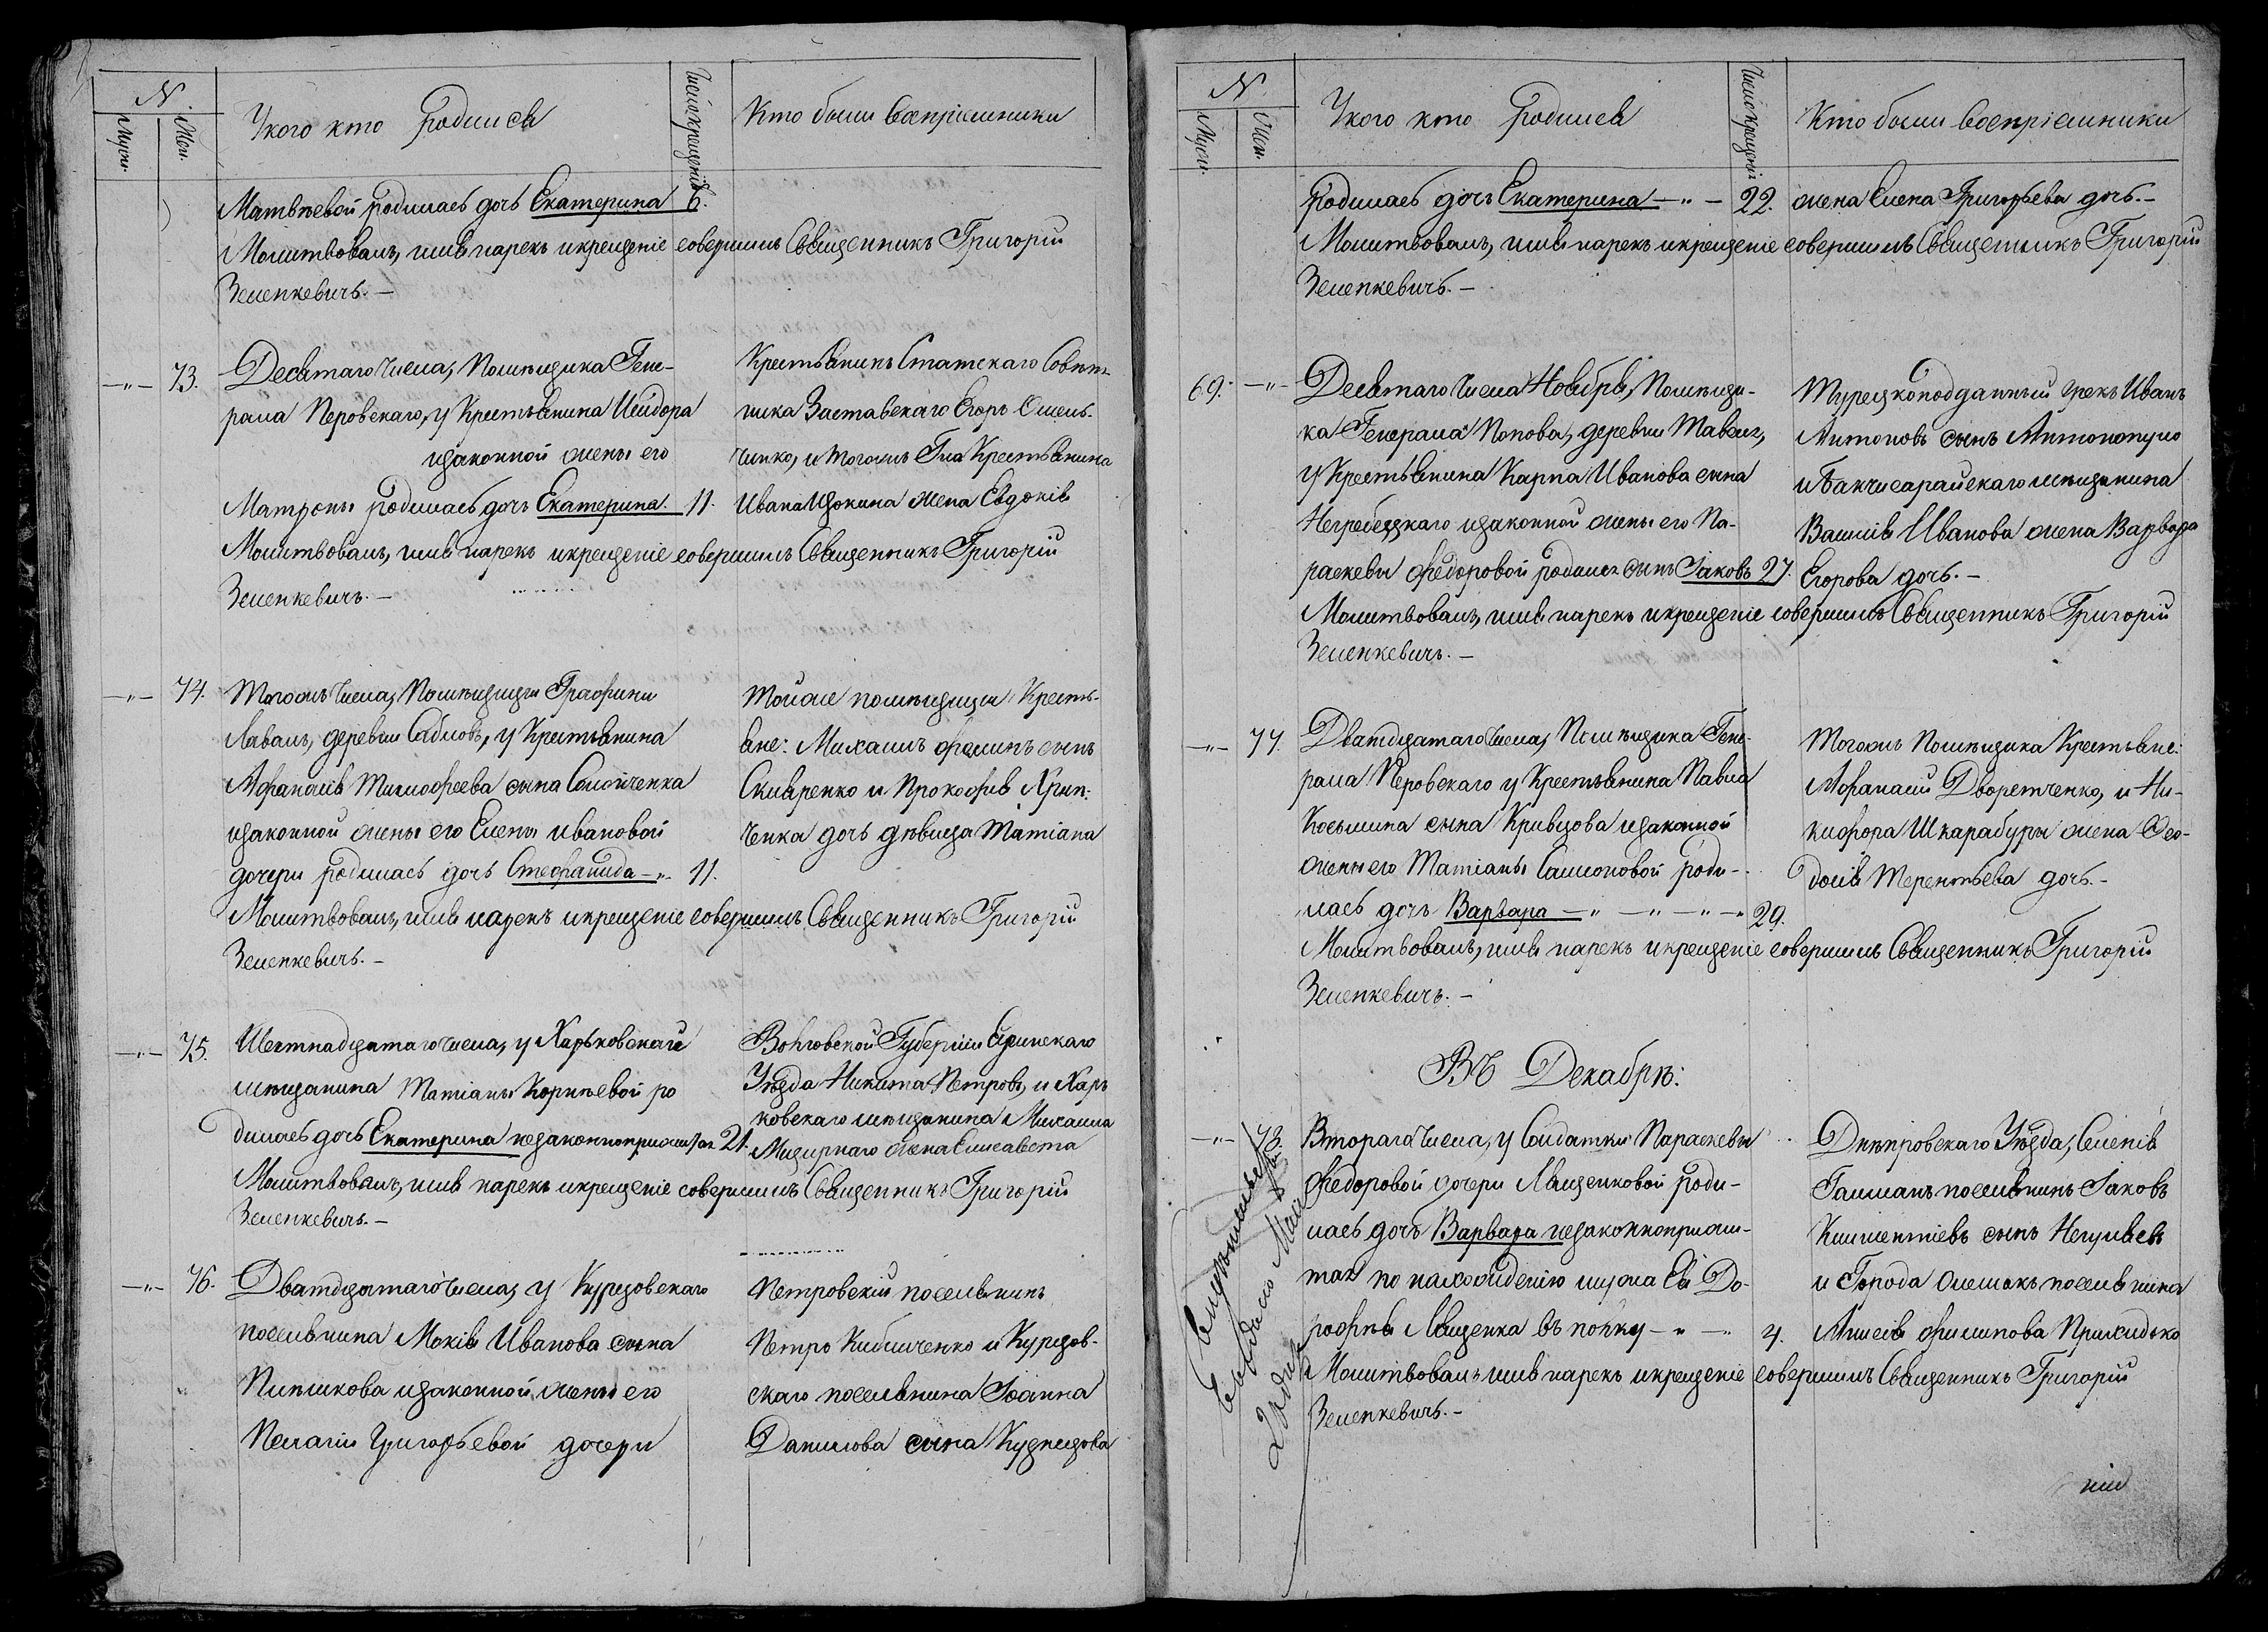 N.
Муж.
Жен.
У кого кто родился
Число крещенія
Кто были воспріемники
Матвѣевой родилась дочь Екатерина 6.
Молитвовалъ, имя нарекъ и крещеніе совершилъ Священникъ Григорій
Зеленкевичь. –
–„– 73.
Десятаго числа, Помѣщика Гене-
рала Перовскаго, у Крестьянина Исидора
и законной жены его
Матроны родилась дочь Екатерина. 11.
Крестьянинъ Статскаго Совѣт-
ника Заставскаго Егоръ Омель-
ченко, и тогожъ Г-на Крестьянина
Ивана жена Евдокія
Молитвовалъ, имя нарекъ и крещеніе совершилъ Священникъ Григорій
Зеленкевичъ. –
–„– 74.
Тогожъ числа, Помѣщицы Графини
Лаваль, деревни Сабловъ, у Крестьянина
Афанасія Тимофеева сына
и законной жены его Елены Ивановой
дочери родилась дочь Стефанида –„– 11.
Тойже помѣщицы Кресть-
яне: Михаилъ Фоминъ сынъ
Скляренко и Прокофія Хрип-
ченка дочь дѣвица Татіана
Молитвовалъ, имя нарекъ и крещеніе совершилъ Священникъ Григорій
Зеленкевичь. –
–„– 75.
Шестнадцатаго числа, у Харьковскаго
мѣщанина Татіаны Корнѣевой ро
дилась дочь Екатерина незаконноприжитая 21.
Губерніи
Уѣзда Никита Петровъ, и Харь
ковскаго мѣщанина Михаила
жена Елисавета
Молитвовалъ, имя нарекъ и крещеніе совершилъ Священникъ Григорій
Зеленкевичь. –
–„– 76.
Дватдцатаго числа, у Курцовскаго
поселянина Мокія Иванова сына
и законной жены его
Пелагіи Григорьевой дочери
Петровскій поселянинъ
Петро Кибальченко и Курцов-
скаго поселянина Іоанна
Данилова сына Кузнецова
N.
Муж.
Жен.
У кого кто родился
Число крещенія
Кто были воспріемники
родилась дочь Екатерина –„– 22.
жена Елена Григорьева дочь. –
Молитвовалъ, имя нарекъ и крещеніе совершилъ Священникъ Григорій
Зеленкевичь. –
69. –„–
Десятаго числа Ноября, Помѣщи-
ка Генерала Попова, деревни Тавель,
у Крестьянина Карпа Иванова сына
Негребецкаго и законной жены его Па-
раскевы Федоровой родился сынъ Іаковъ 27.
Турецкоподданный грекъ Иванъ
Антоновъ сынъ Антонопуло
и Бакчисарайскаго мѣщанина
Василія Иванова жена Варвара
Егорова дочь. –
Молитвовалъ, имя нарекъ и крещеніе совершилъ Священникъ Григорій
Зеленкевичъ. –
–„– 77.
Дватдцатаго числа, Помѣщика Гене-
рала Перовскаго у Крестьянина Павла
Косьмина сына Кривцова и законной
жены его Татіаны Самсоновой роди-
лась дочь Варвара –„–„–„– 29.
Тогожъ Помѣщика Крестьяне:
Афанасій Дворетченко, и Ни-
кифора Шкарабуры жена Фео-
досія Терентьева дочь. –
Молитвовалъ, имя нарекъ и крещеніе совершилъ Священникъ Григорій
Зеленкевичь. –
Въ Декабрѣ:
–„– 78.
Втораго числа, у Солдатки Параскевы
Федоровой дочери Ляшенковой роди-
лась дочь Варвара незаконноприжи-
тая по нахожденію мужа Ея До-
рофѣя Ляшенка въ полку –„– 4.
Днѣпровскаго Уѣзда, Селенія
поселянинъ Іаковъ
Климентіевъ сынъ
и Города Олешокъ поселянина
Алексія Филипова Прихидько
Свидѣтельство
выдано
Молитвовалъ имя нарекъ и крещеніе совершилъ Священникъ Григорій
Зеленкевичъ. –